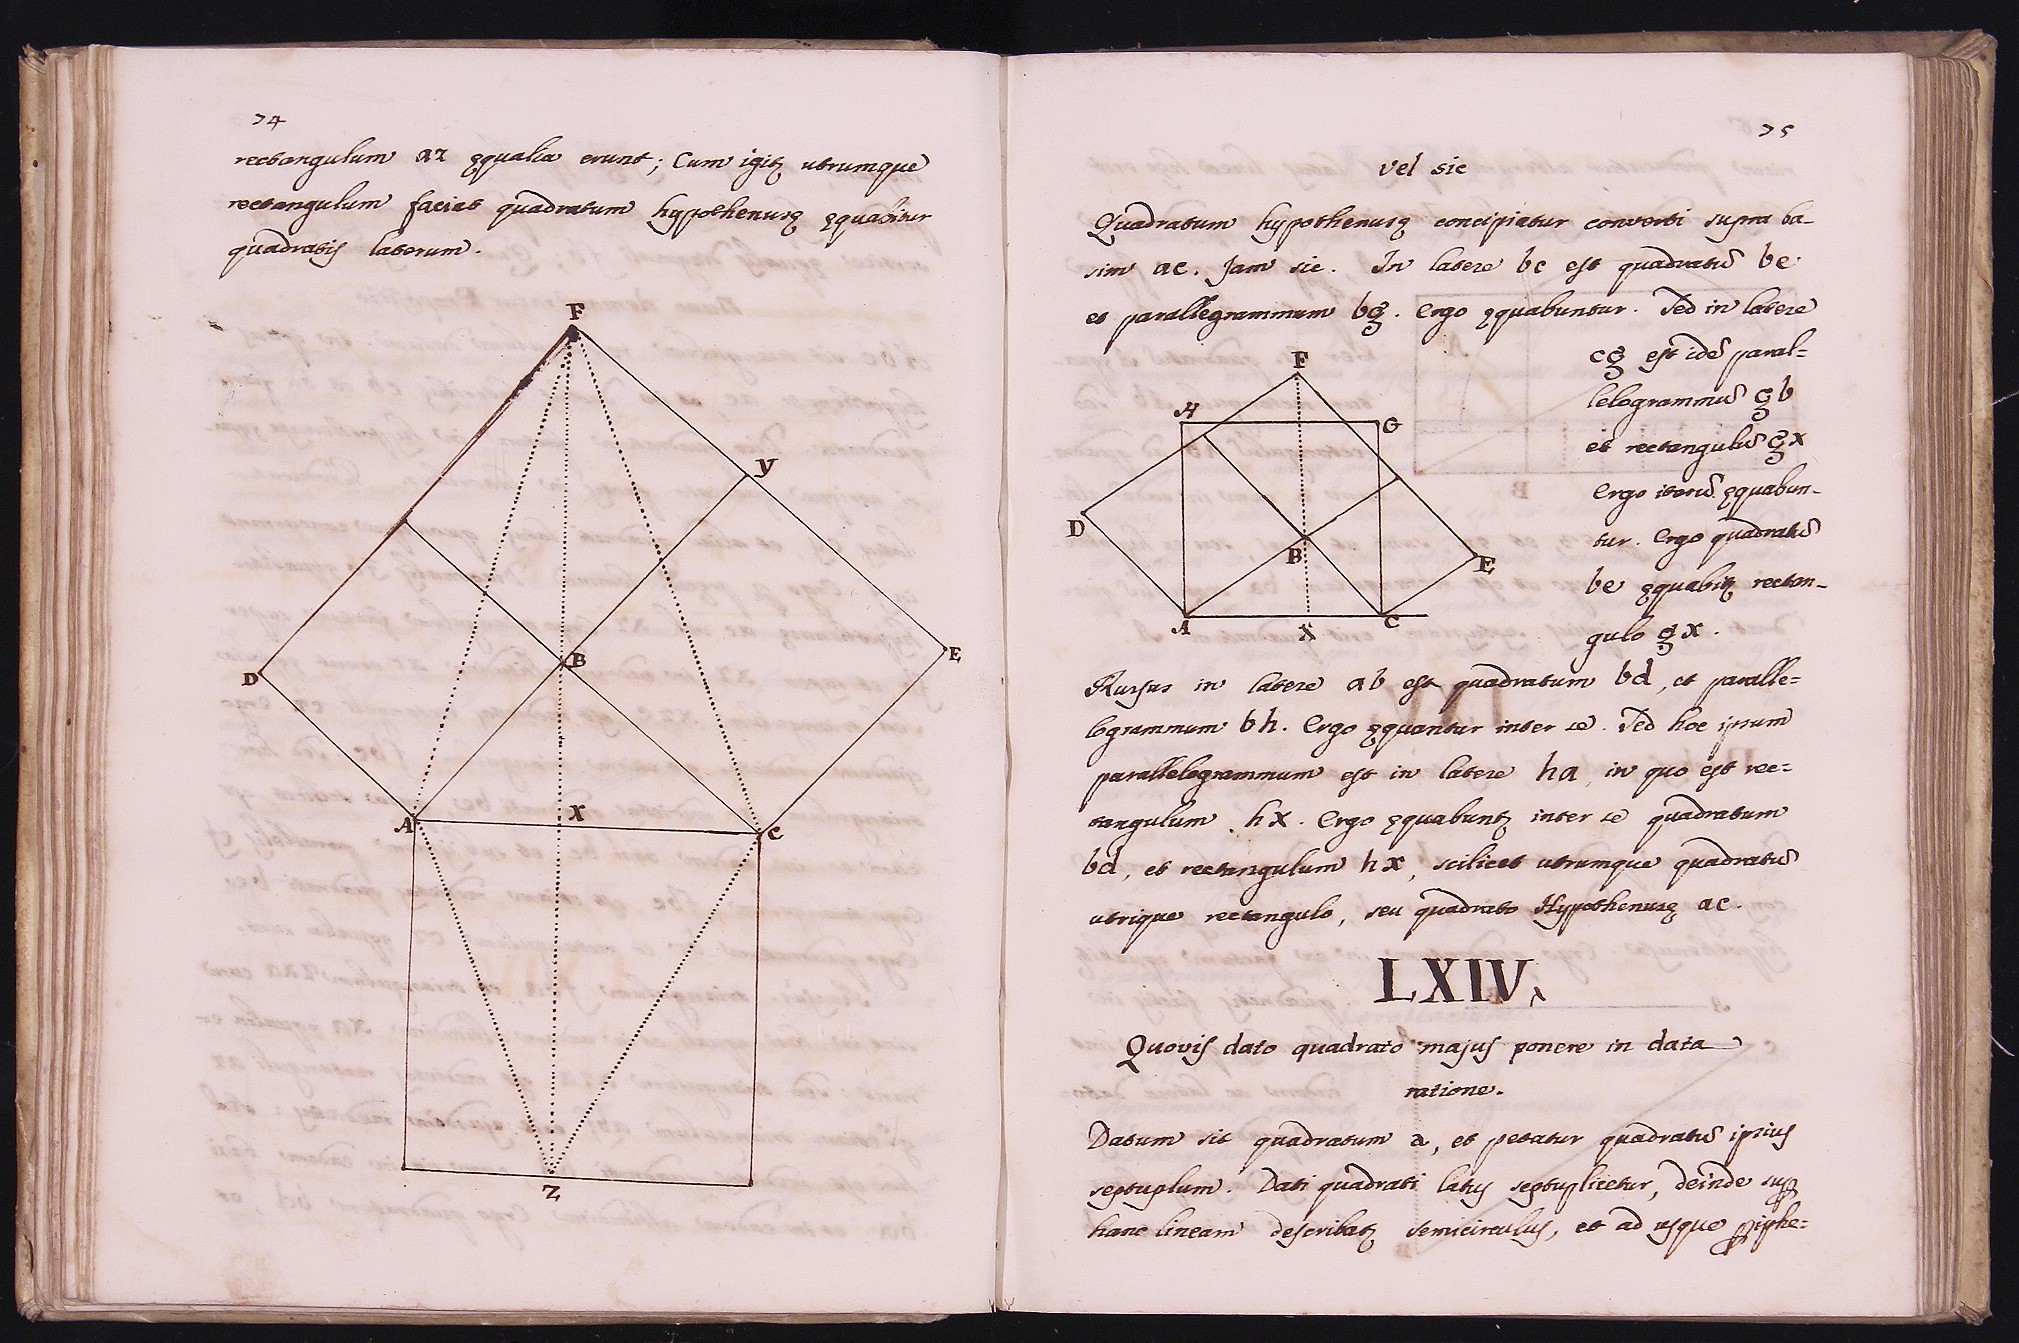 74
rectangulum az ęqualia erunt; Cum igitꝫ utrumque
rectangulum faciat quadratum hypothenusę ęquabitur
quadratis laterum.
F
y
B
E
D
A
X
C
Z
75
vel sic
Quadratum hypothenusę concipiatur converti supra ba-
sim ac. Jam sic. In latere bc est quadratū be
et parallegrammum bg. Ergo ęquabuntur. Sed in latere
cg est idē paral=
lelogrammū gb
et rectangulū gx
Ergo iterū ęquabun-
tur. Ergo quadratū
be ęquabitꝫ rectan-
gulo gx.
F
H
G
D
B
E
A
X
C
Rursus in latere ab est quadratum bd, et paralle=
logrammum bh. Ergo ęquantur inter se. Sed hoc ipsum
parallelogrammum est in latere ha, in quo est rec=
tangulum hx. Ergo ęquabuntꝫ inter se quadratum
bd, et rectangulum hx, scilicet utrumque quadratū
utrique rectangulo, seu quadrato Hypothenusę ac.
LXIV.
Quovis dato quadrato majus ponere in data
ratione.
Datum sit quadratum a, et petatur quadratū ipsius
septuplum. Dati quadrati latus septuplicetur, deinde suꝑ
hanc lineam describatꝫ semicirculus, et ad usque ꝑiphe=